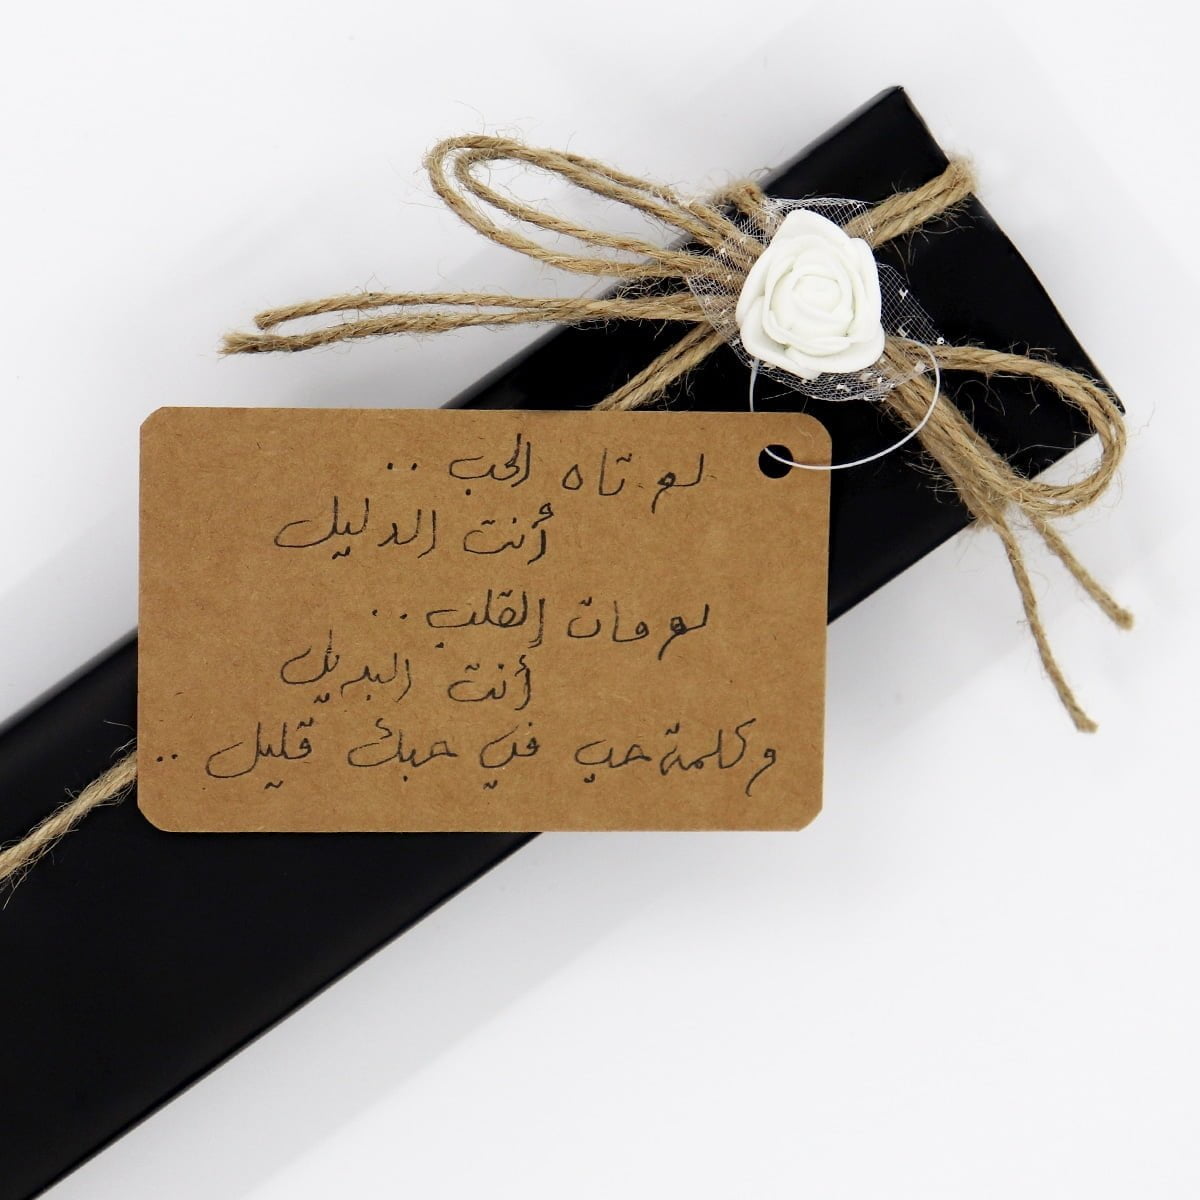 لو تاه الحب ..
أنت الدليل
لو مات القلب ..
أنت البديل
وكلمة حب في حبك قليل ..